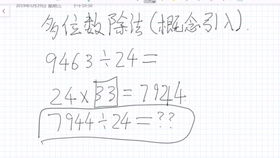 多位数除法(概念引入).
9463÷24=
24×33=7924
7944÷24=??